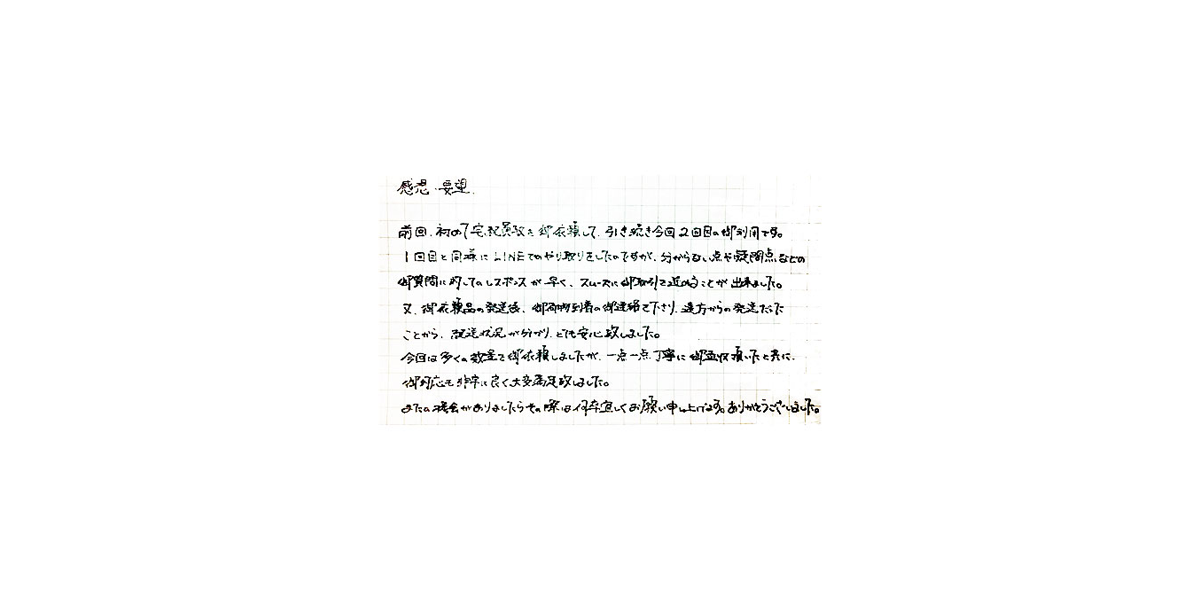 感想・要望
前回、初めて宅配買取を御依頼して、引き続き今回2回目の御利用です。
1回目と同様にLINEでのやり取りをしたのですが、分からない点や疑問点などの
御質問に対してのレスポンスが早く、スムーズに御取引を進めることが出来ました。
又、御依頼品の発送後、御荷物到着の御連絡を下さり、遠方からの発送だった
ことから、配送状況が分かり、とても安心致しました。
今回は多くの数量を御依頼しましたが、一点一点丁寧に御査収頂いたと共に、
御対応も非常に良く大変満足致しました。
またの機会がありましたらその際は何卒宜しくお願い申し上げます。ありがとうございました。